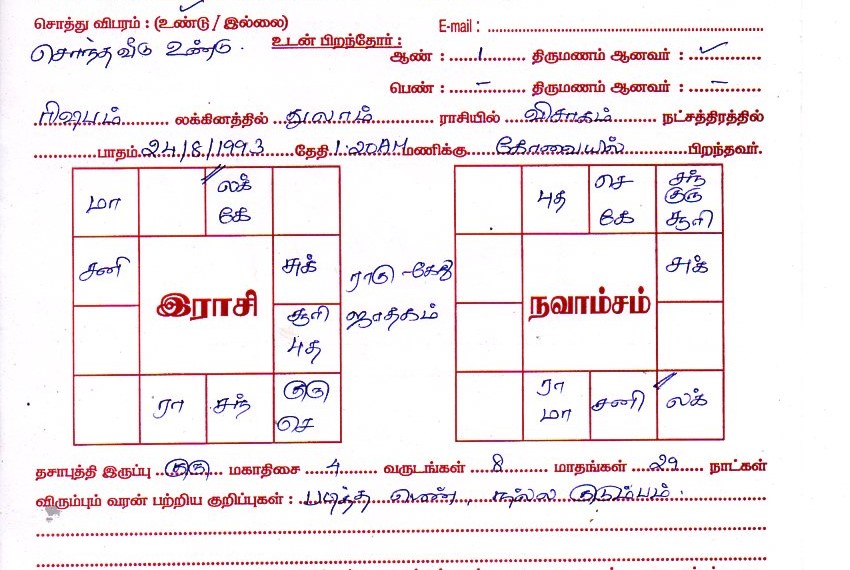 சொத்து விபரம் : (உண்டு / இல்லை)
E-mail : 
சொந்த வீடு உண்டு.
உடன் பிறந்தோர் :
ஆண் : 1 திருமணம் ஆனவர் : ✓
பெண் : – திருமணம் ஆனவர் : –
ரிஷபம் லக்கினத்தில் துலாம் ராசியில் விசாகம் நட்சத்திரத்தில்
பாதம் 24/8/1993 தேதி 1:20AM மணிக்கு கோவையில் பிறந்தவர்.
மா
லக்
கே
சனி
சுக்
இராசி
சூரி
புத
ரா
சந்
குரு
செ
ராகு - கேது
ஜாதகம்
புத
செ
கே
சந்
குரு
சூரி
சுக்
நவாம்சம்
ரா
மா
சனி
லக்
தசாபுத்தி இருப்பு குரு மகாதிசை 4 வருடங்கள் 8 மாதங்கள் 29 நாட்கள்
விரும்பும் வரன் பற்றிய குறிப்புகள் : படித்த பெண், நல்ல குடும்பம்.